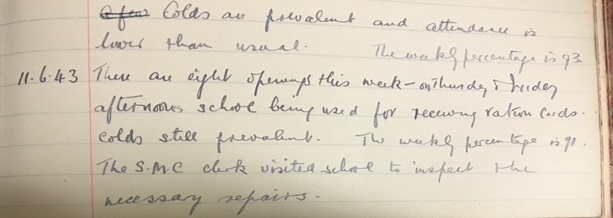 A few Colds are prevalent and attendance is
lower than usual. The weekly percentage is 93
11.6.43 There are eight openings this week - on Thursday & Friday
afternoons school being used for receiving ration cards.
Colds still prevalent. The weekly percentage is 91.
The S.M.C clerk visited school to inspect the
necessary repairs.